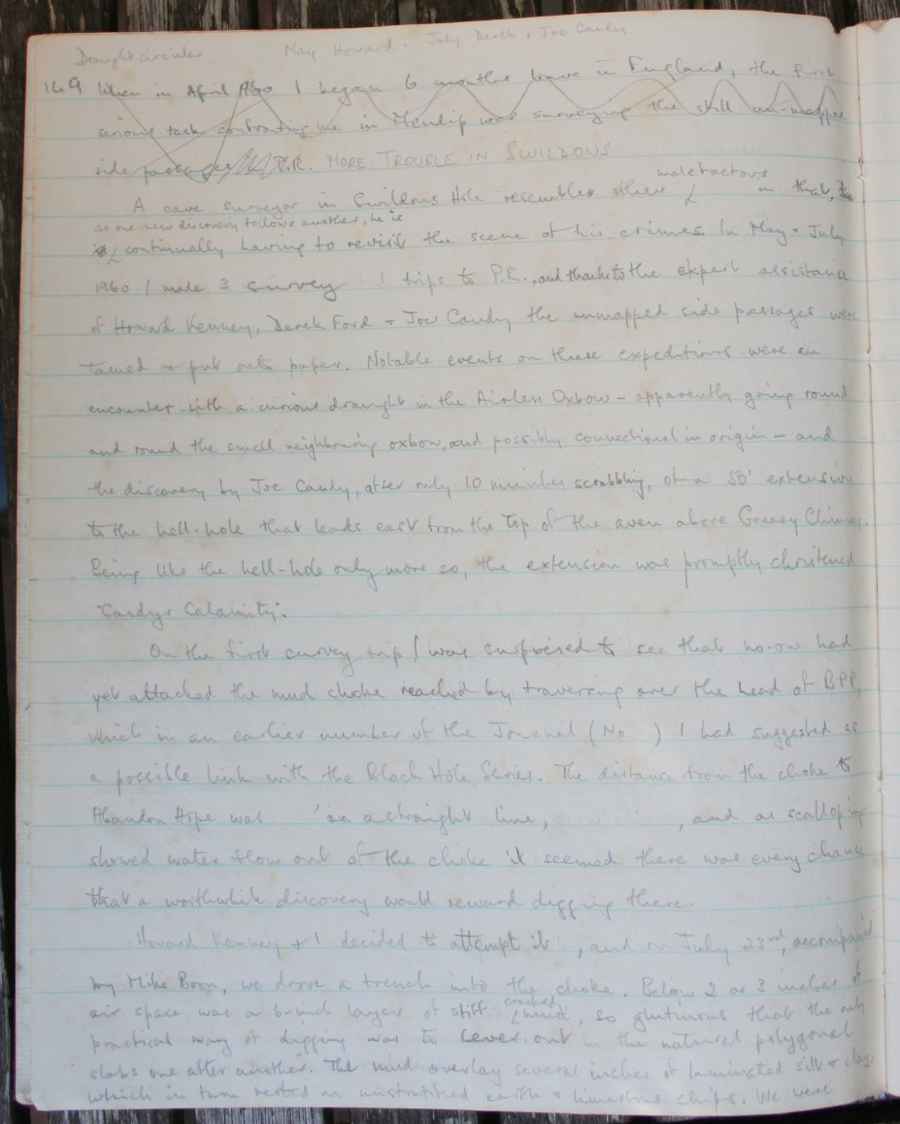 Draught circular May Howard - July Derek + Joe Candy
169 When in April 1960 I began 6 months leave in England, the first
serious task confronting me in Mendip was surveying the still un-mapped
side passages P.R. MORE TROUBLE IN SWILDONS
malefactors
A cave surveyor in Swildons Hole resembles other in that,
as one new discovery follows another, he is
continually having to revisit the scene of his crimes. In May + July
1960 I made 3 survey trips to P.R., and thanks to the expert assistance
of Howard Kenney, Derek Ford + Joe Candy the unmapped side passages were
tamed + put onto paper. Notable events on these expeditions were an
encounter with a curious draught in the Airless Oxbow - apparently going round
and round the small neighbouring oxbow, and possibly convectional in origin - and
the discovery by Joe Candy, after only 10 minutes scrabbling, of a 50' extension
to the hell-hole that leads east from the top of the aven above Greasy Chimney.
Being like the hell-hole only more so, the extension was promptly christened
"Candy's Calamity".
On the first survey trip I was surprised to see that no-one had
yet attacked the mud choke reached by traversing over the head of BPP,
which in an earlier number of the Journal (No ) I had suggested as
a possible link with the Black Hole Series. The distance from the choke to
Abandon Hope was ' in a straight line, , and as scalloping
showed water flow out of the choke it seemed there was every chance
that a worthwhile discovery would reward digging there.
Howard Kenney + I decided to attempt it, and on July 23rd, accompanied
by Mike Boon, we drove a trench into the choke. Below 2 or 3 inches of
cracked
air space was a layer of stiff mud, so glutinous that the only
practical way of digging was to lever out the natural polygonal
slabs one after another. The mud overlay several inches of laminated silt + clay
which in turn rested on unstratified earth + limestone chips. We were